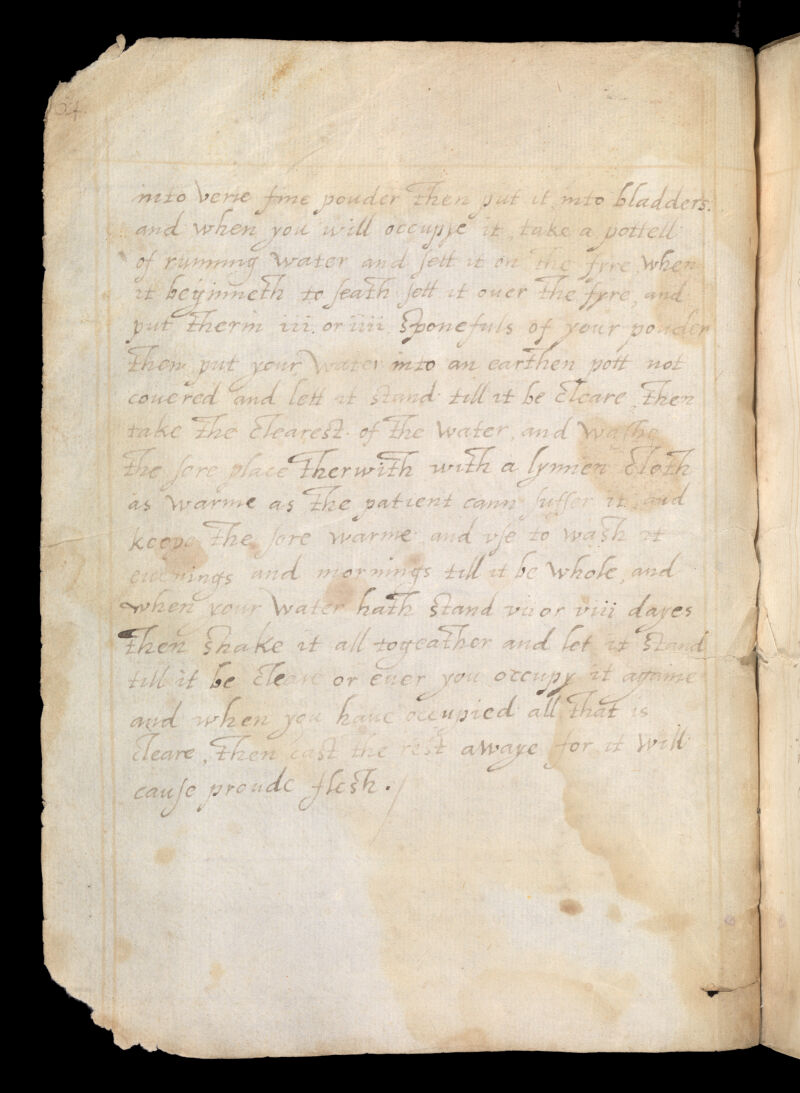 64
into verie fine pouder then put it into bladders.
and when you will occupye it, take a pottell
of running water and sett it on the fyre, when
it beginneth to seath sett it ouer the fyre, and
put therin iii. or iiii. sponefuls of your pouder
then put your water into an earthen pott not
couered and lett it stand till it be cleare, then
take the clearest of the water, and washe
the sore place therwith with a lynnen cloth
as warme as the patient cann suffer it and
keepe the sore warme and vse to wash it
euenings and mornings till it be whole, and
when your water hath stand vii or viii dayes
then shake it all togeather and let it stand
till it be cleare or euer you occupy it againe
and when you haue occupied all that is
cleare, then cast the rest awaye for it will
cause proude flesh.